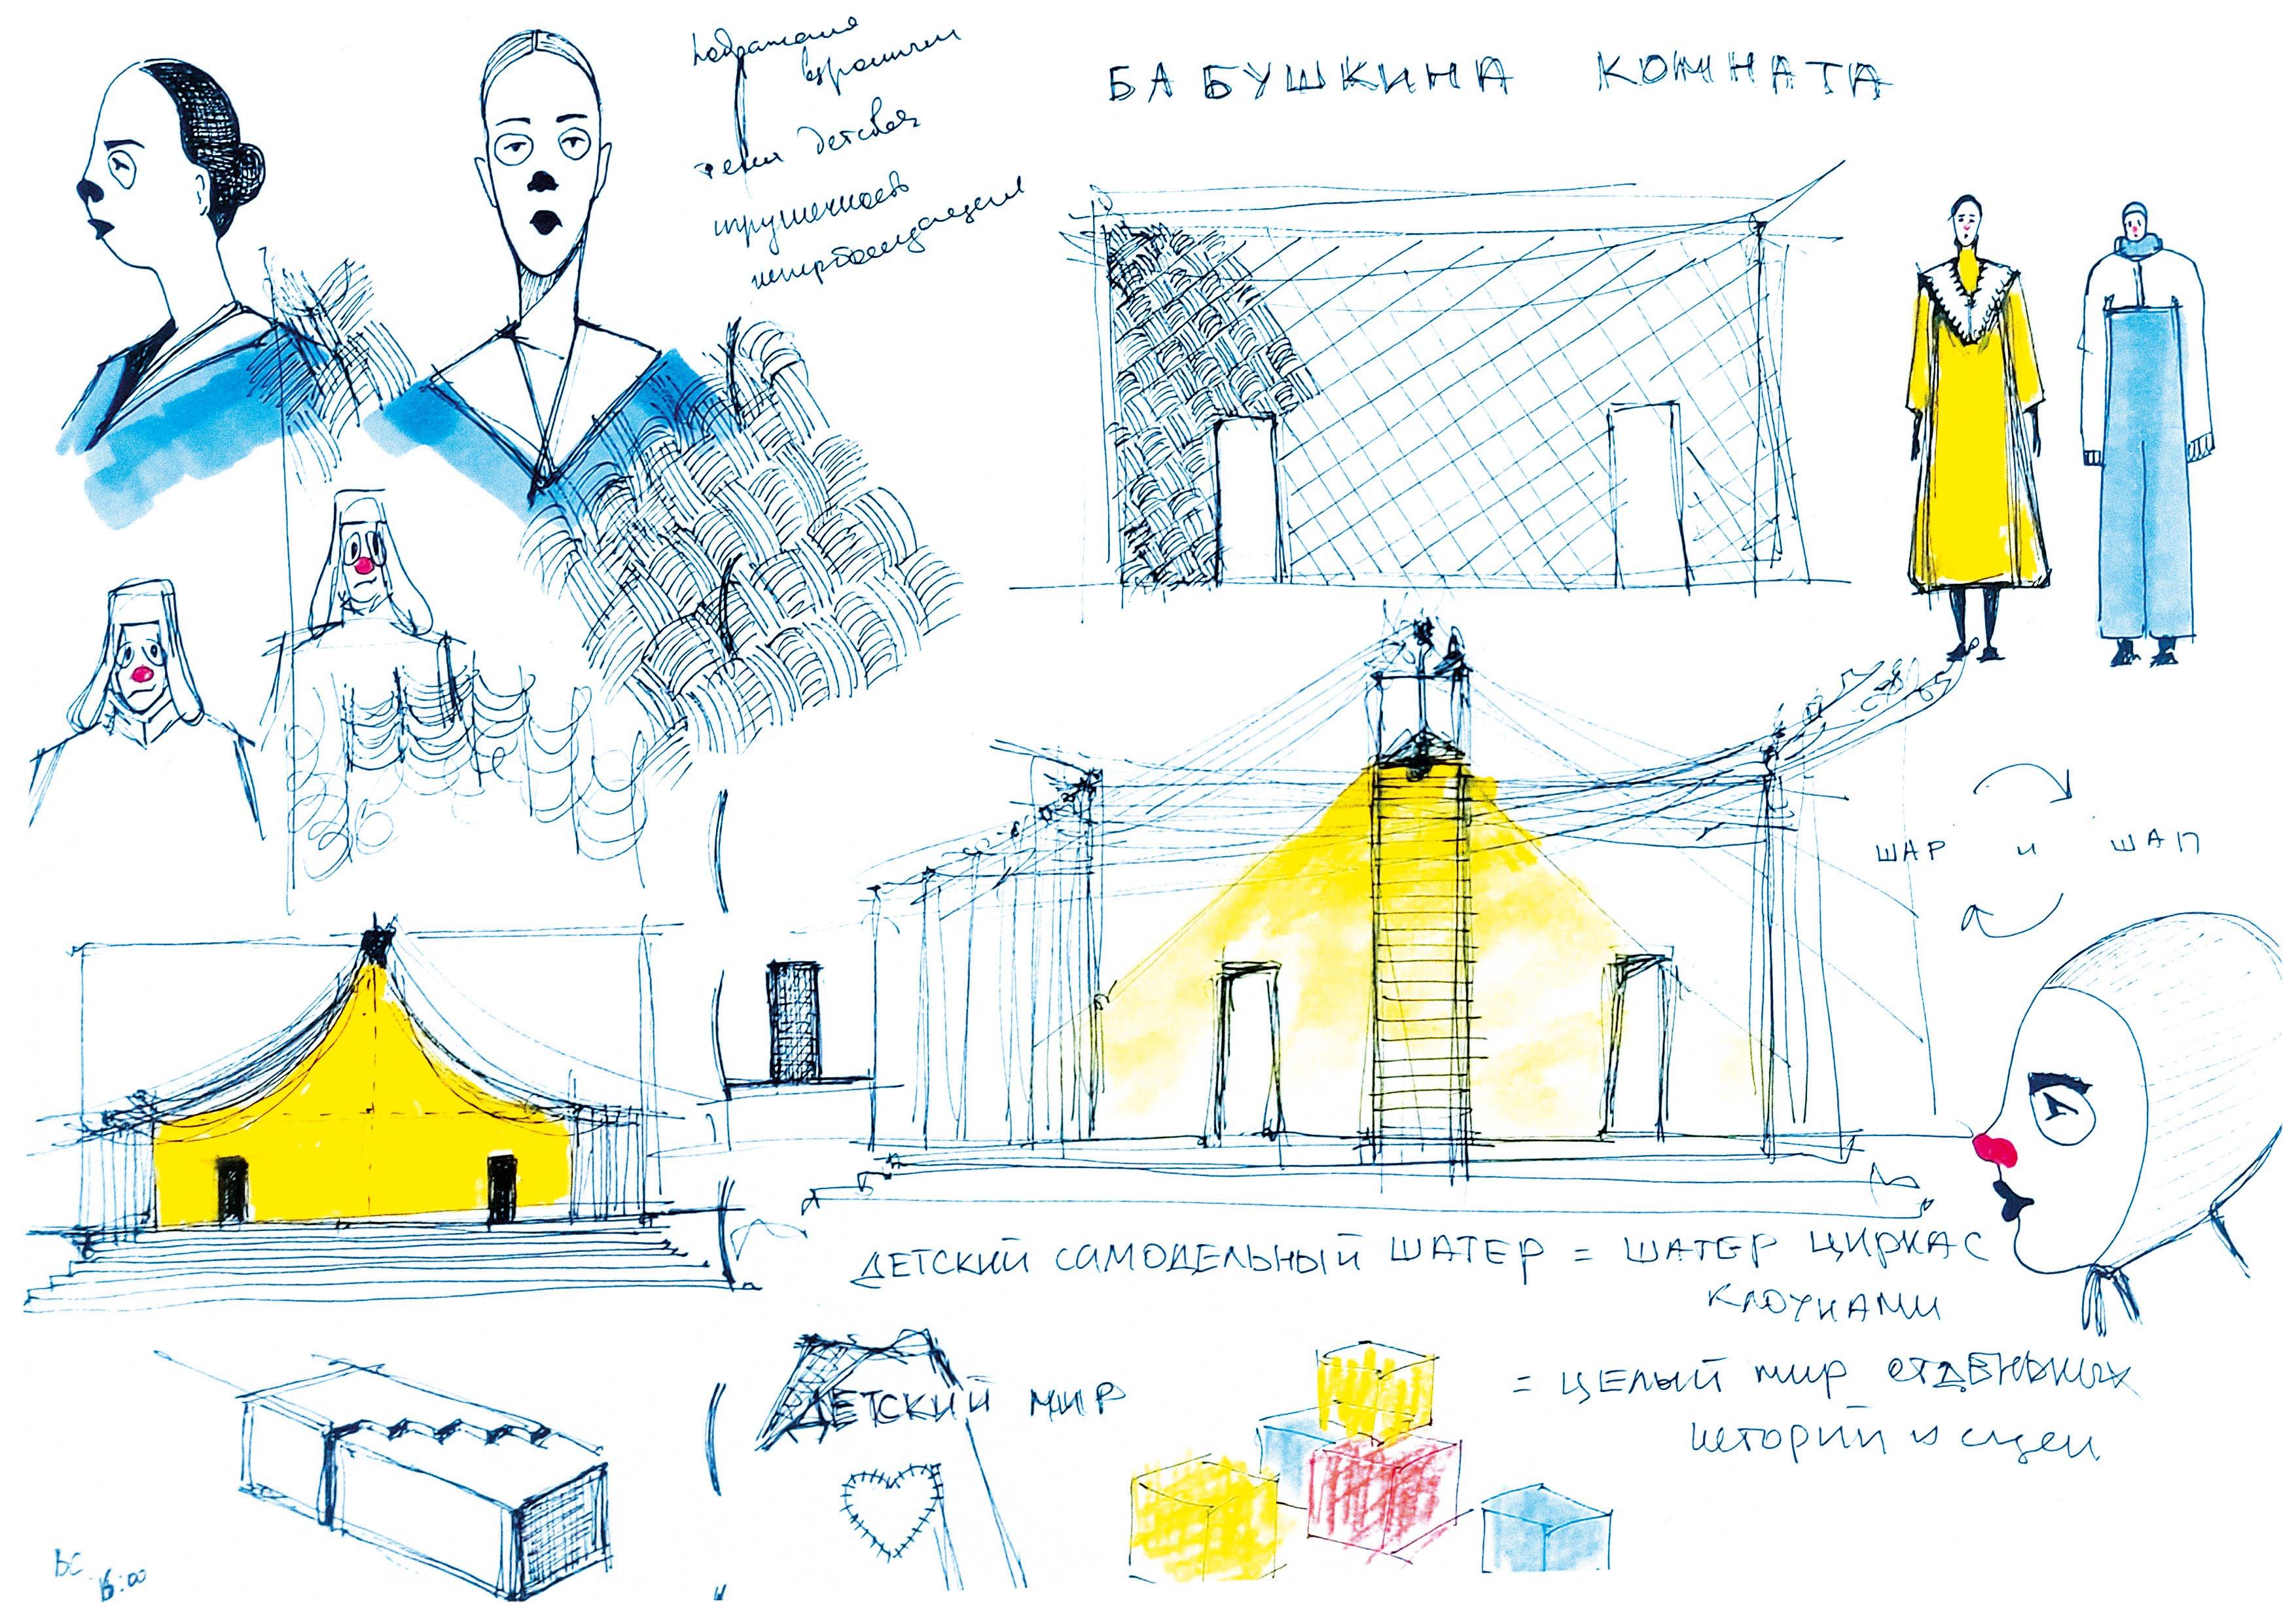 подражание
взрослым
тема детская
игрушечность
БАБУШКИНА КОМНАТА
ШАР и ШАП
ДЕТСКИЙ САМОДЕЛЬНЫЙ ШАТЕР = ШАТЕР ЦИРКА С
КЛОУНАМИ
= ЦЕЛЫЙ МИР ОТДЕЛЬНЫХ
ИСТОРИЙ И СЦЕН
ДЕТСКИЙ МИР
ВС
16:00